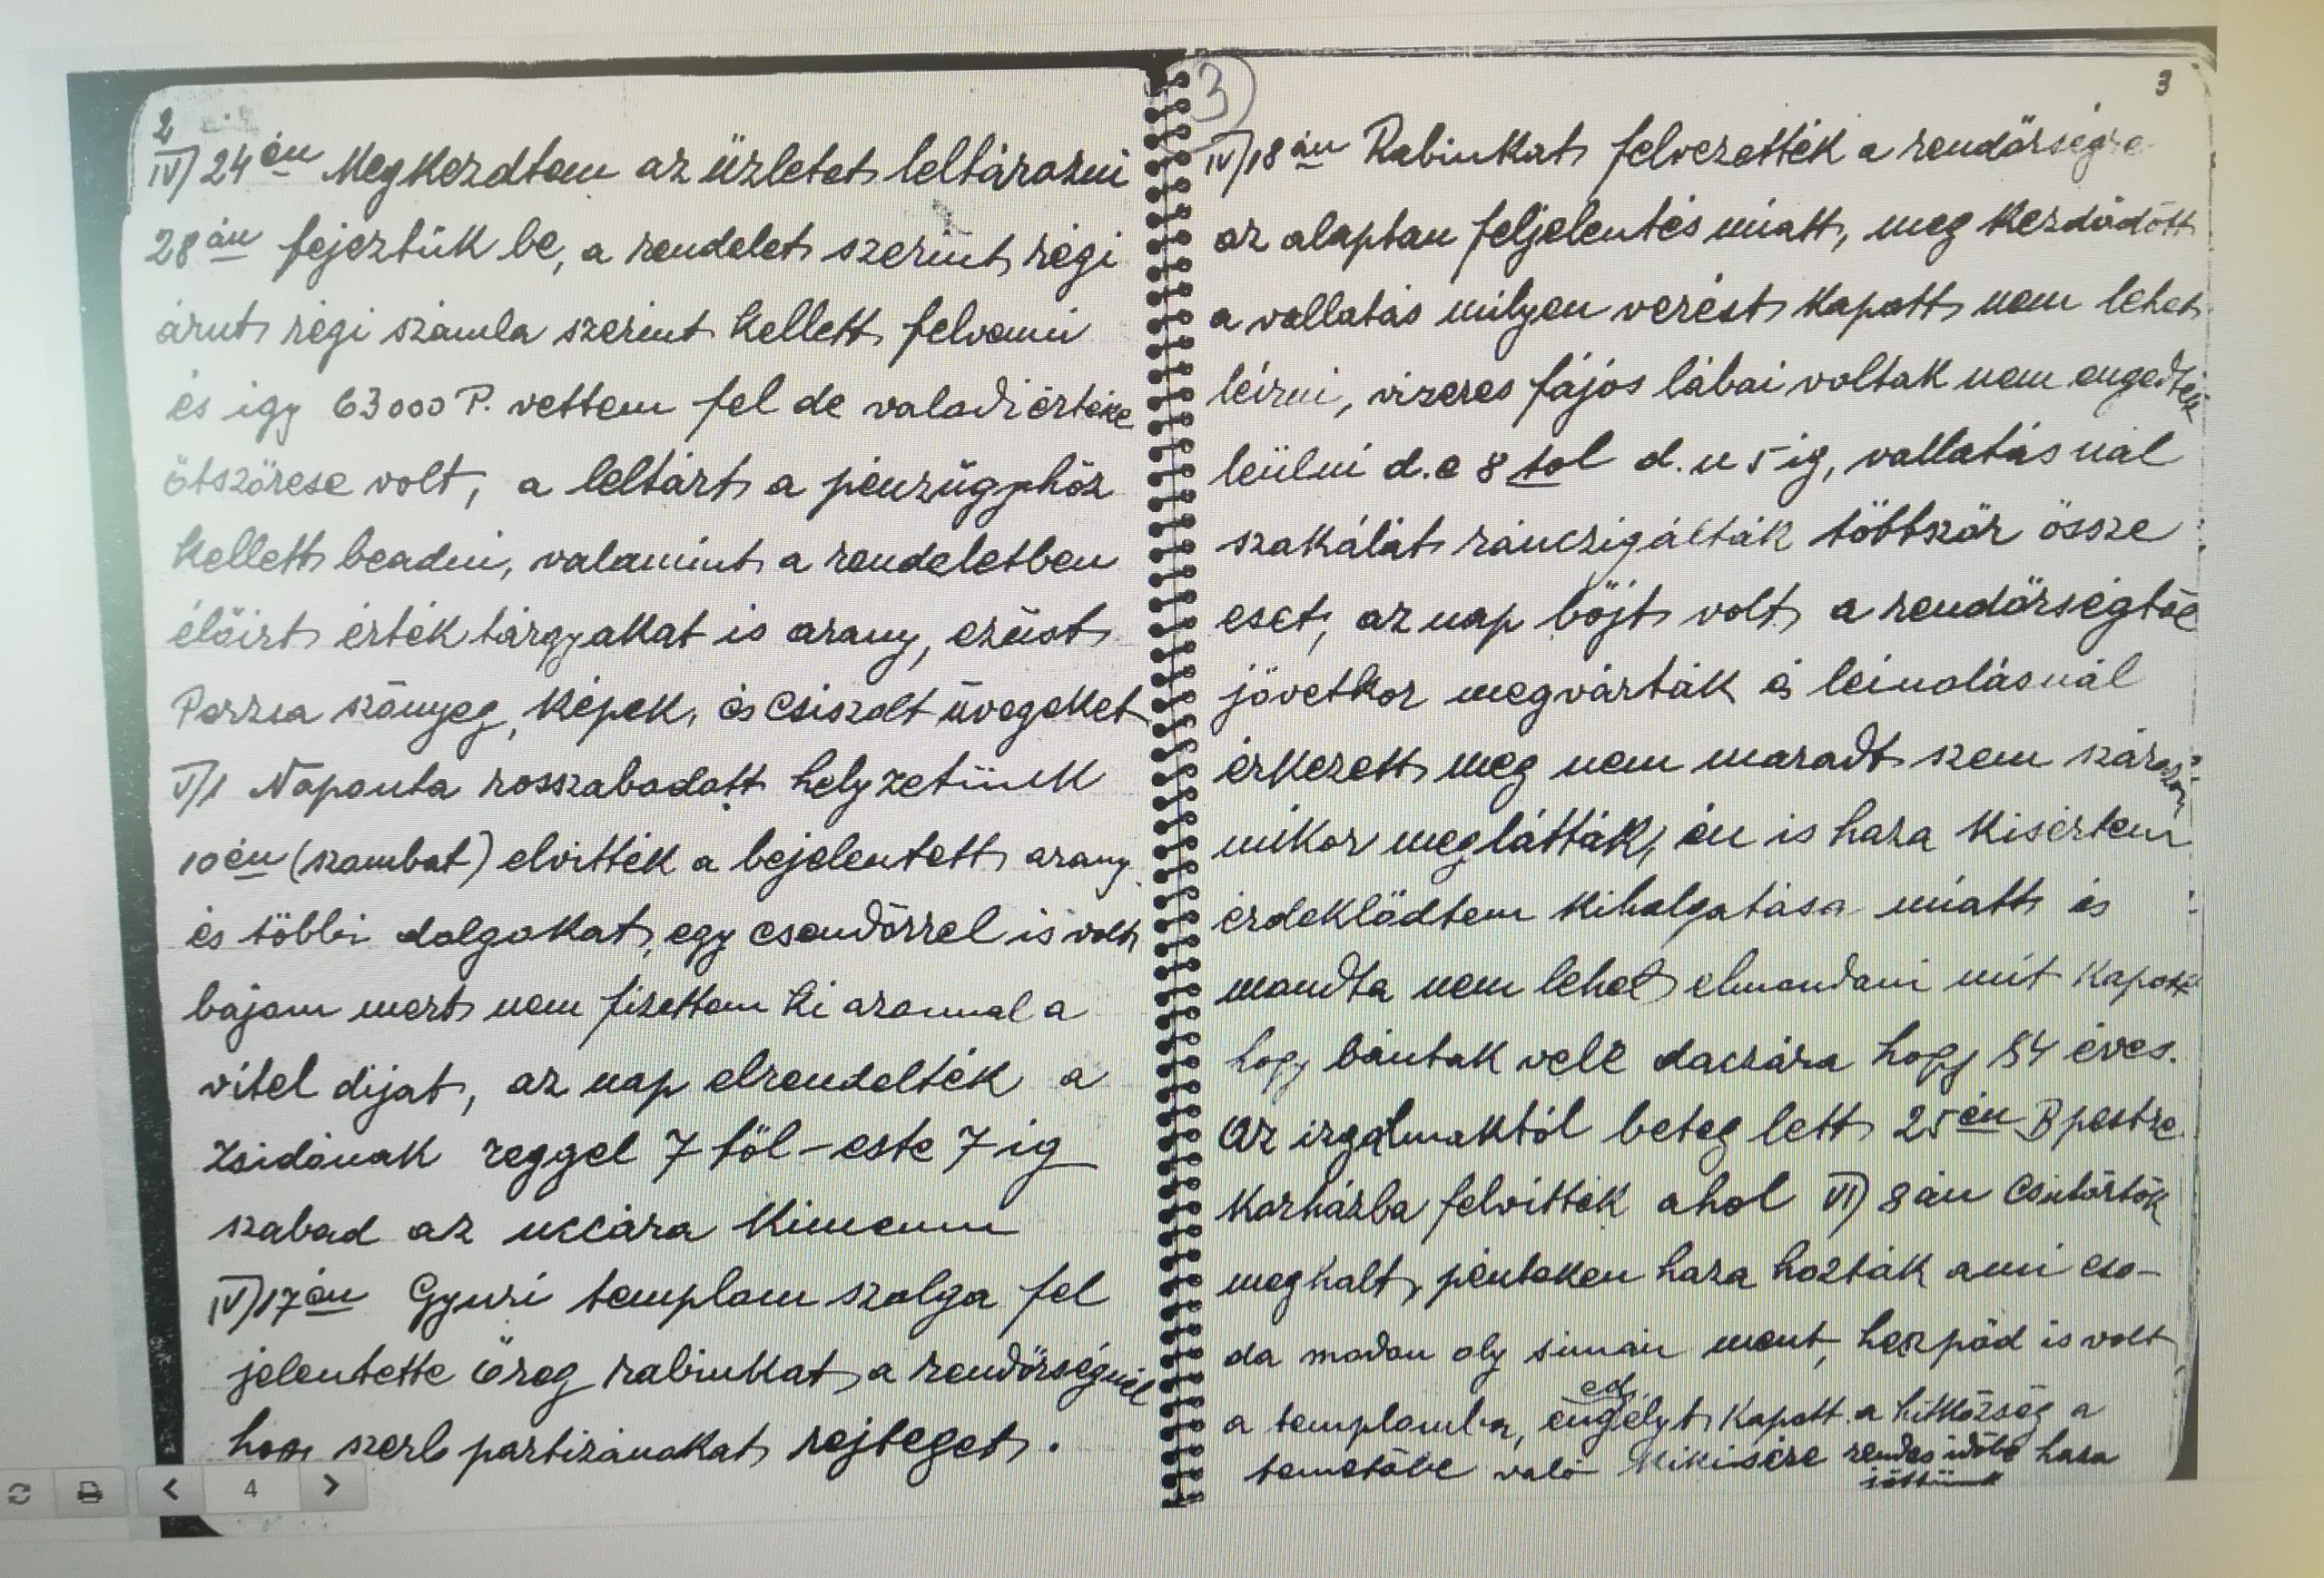 2
IV) 24 én Megkezdtem az üzletet leltározni
28 án fejeztük be, a rendelet szerint régi
árut régi számla szerint kellett felvenni
és igy 63000 P. vettem fel de valodi értéke
ötszörese volt, a leltárt a pénzügyhöz
kellett beadni, valamint a rendeletben
élöirt érték tárgyakat is arany, ezüst
Perzsa szönyeg, képek, és Csiszolt üvegeket
V)1 Naponta rosszabodott helyzetünk
10 én (szombat) elvitték a bejelentett arany
és többi dolgokat, egy csendörrel is volt
bajom mert nem fizettem ki azonnal a
vitel dijat, az nap elrendelték a
Zsidónak reggel 7 töl - este 7 ig
szabad az uccára kimenni
IV) 17 én Gyuri templom szolga fel
jelentette öreg rabinkat a rendörségnél
hogy szerb partizánokat rejteget.
3)
3
IV) 18 án Rabinkat felvezették a rendörségre
az alaptan feljelentés miatt, meg kezdödött
a vallatás milyen verést kapott nem lehet
leirni, vizeres fájos lábai voltak nem engedték
leülni d.e 8 tol d. u 5 ig, vallatás nál
szakálát ránczigálták többször össze
eset, az nap böjt volt a rendörségtöl
jövetkor megvárták és leinolás nál
érkezett meg nem maradt szem szárazon
mikor meglátták, én is haza kisértem
érdeklödtem kihalgatása miatt és
mondta nem lehet elmondani mit kapott
hogy bántak vele daczára hogy 84 éves.
az izgalmaktól beteg lett 25 én Bpestre
korházba felvitték ahol VI) 8 án Csütörtök
meghalt, pénteken haza hozták ami cso-
da modon oly simán ment, hezpéd is volt
a templomba, engedélyt kapott a hitközség a
temetöbe való kikisére rendes idöbe haza
jöttünk
4